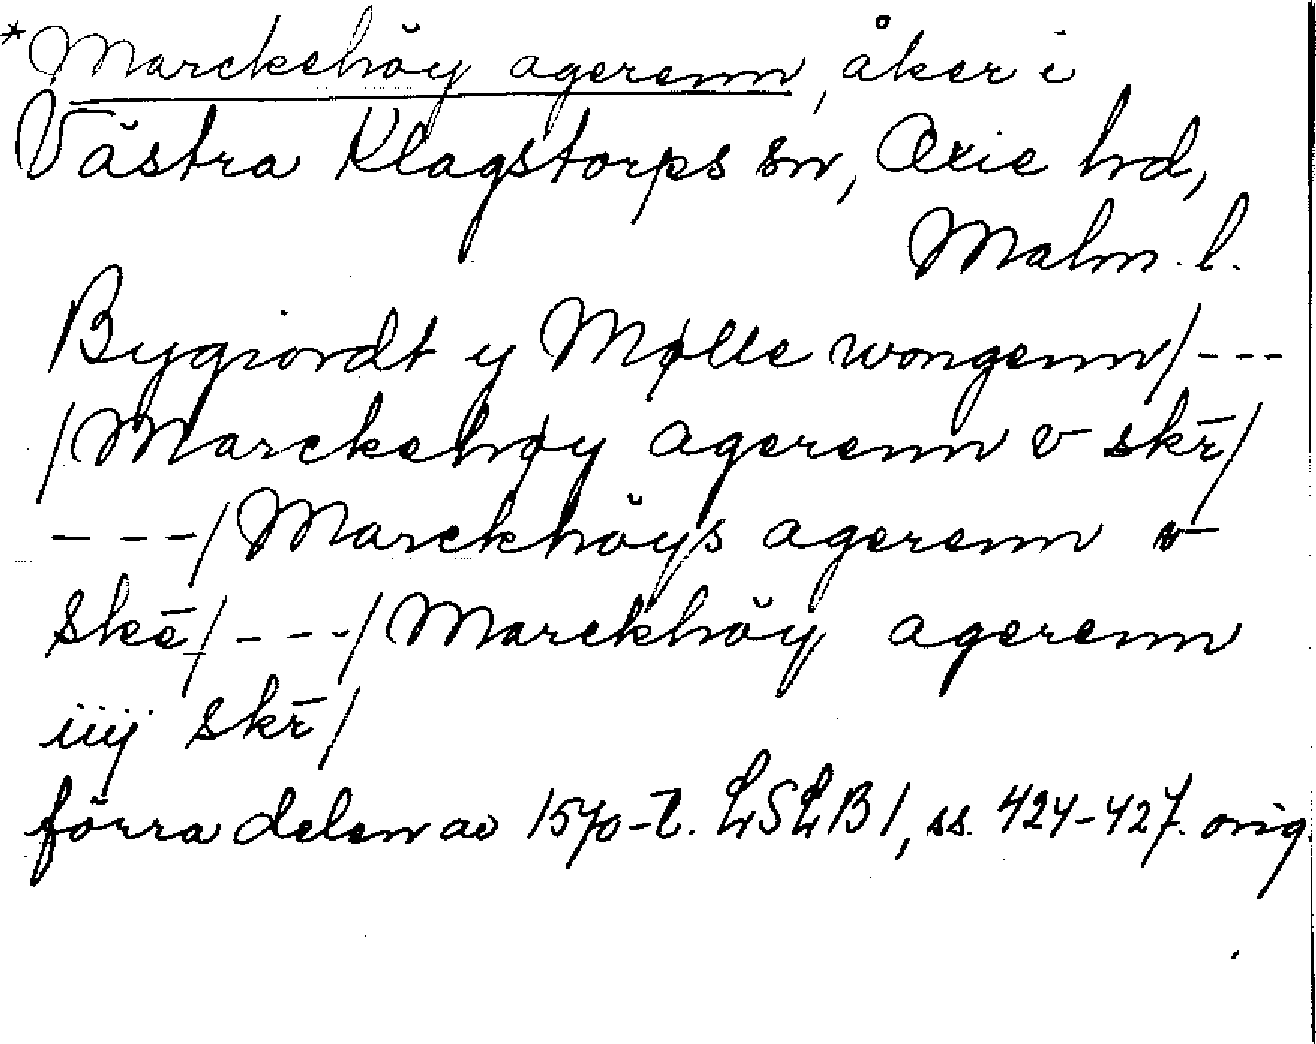 *Marckehöy agerenn, åker i
Västra Klagstorps sn, Oxie hd,
Malm. l.
Bygiordt y Mølle wongenn/---
/Marckehøy agerenn v skr̄/
---/Marckhöys agerenn v
skē/---/Marckhöy agerenn
iiij skr̄/
förra delen av 1570-t. LSLB1, ss. 424-427. orig.